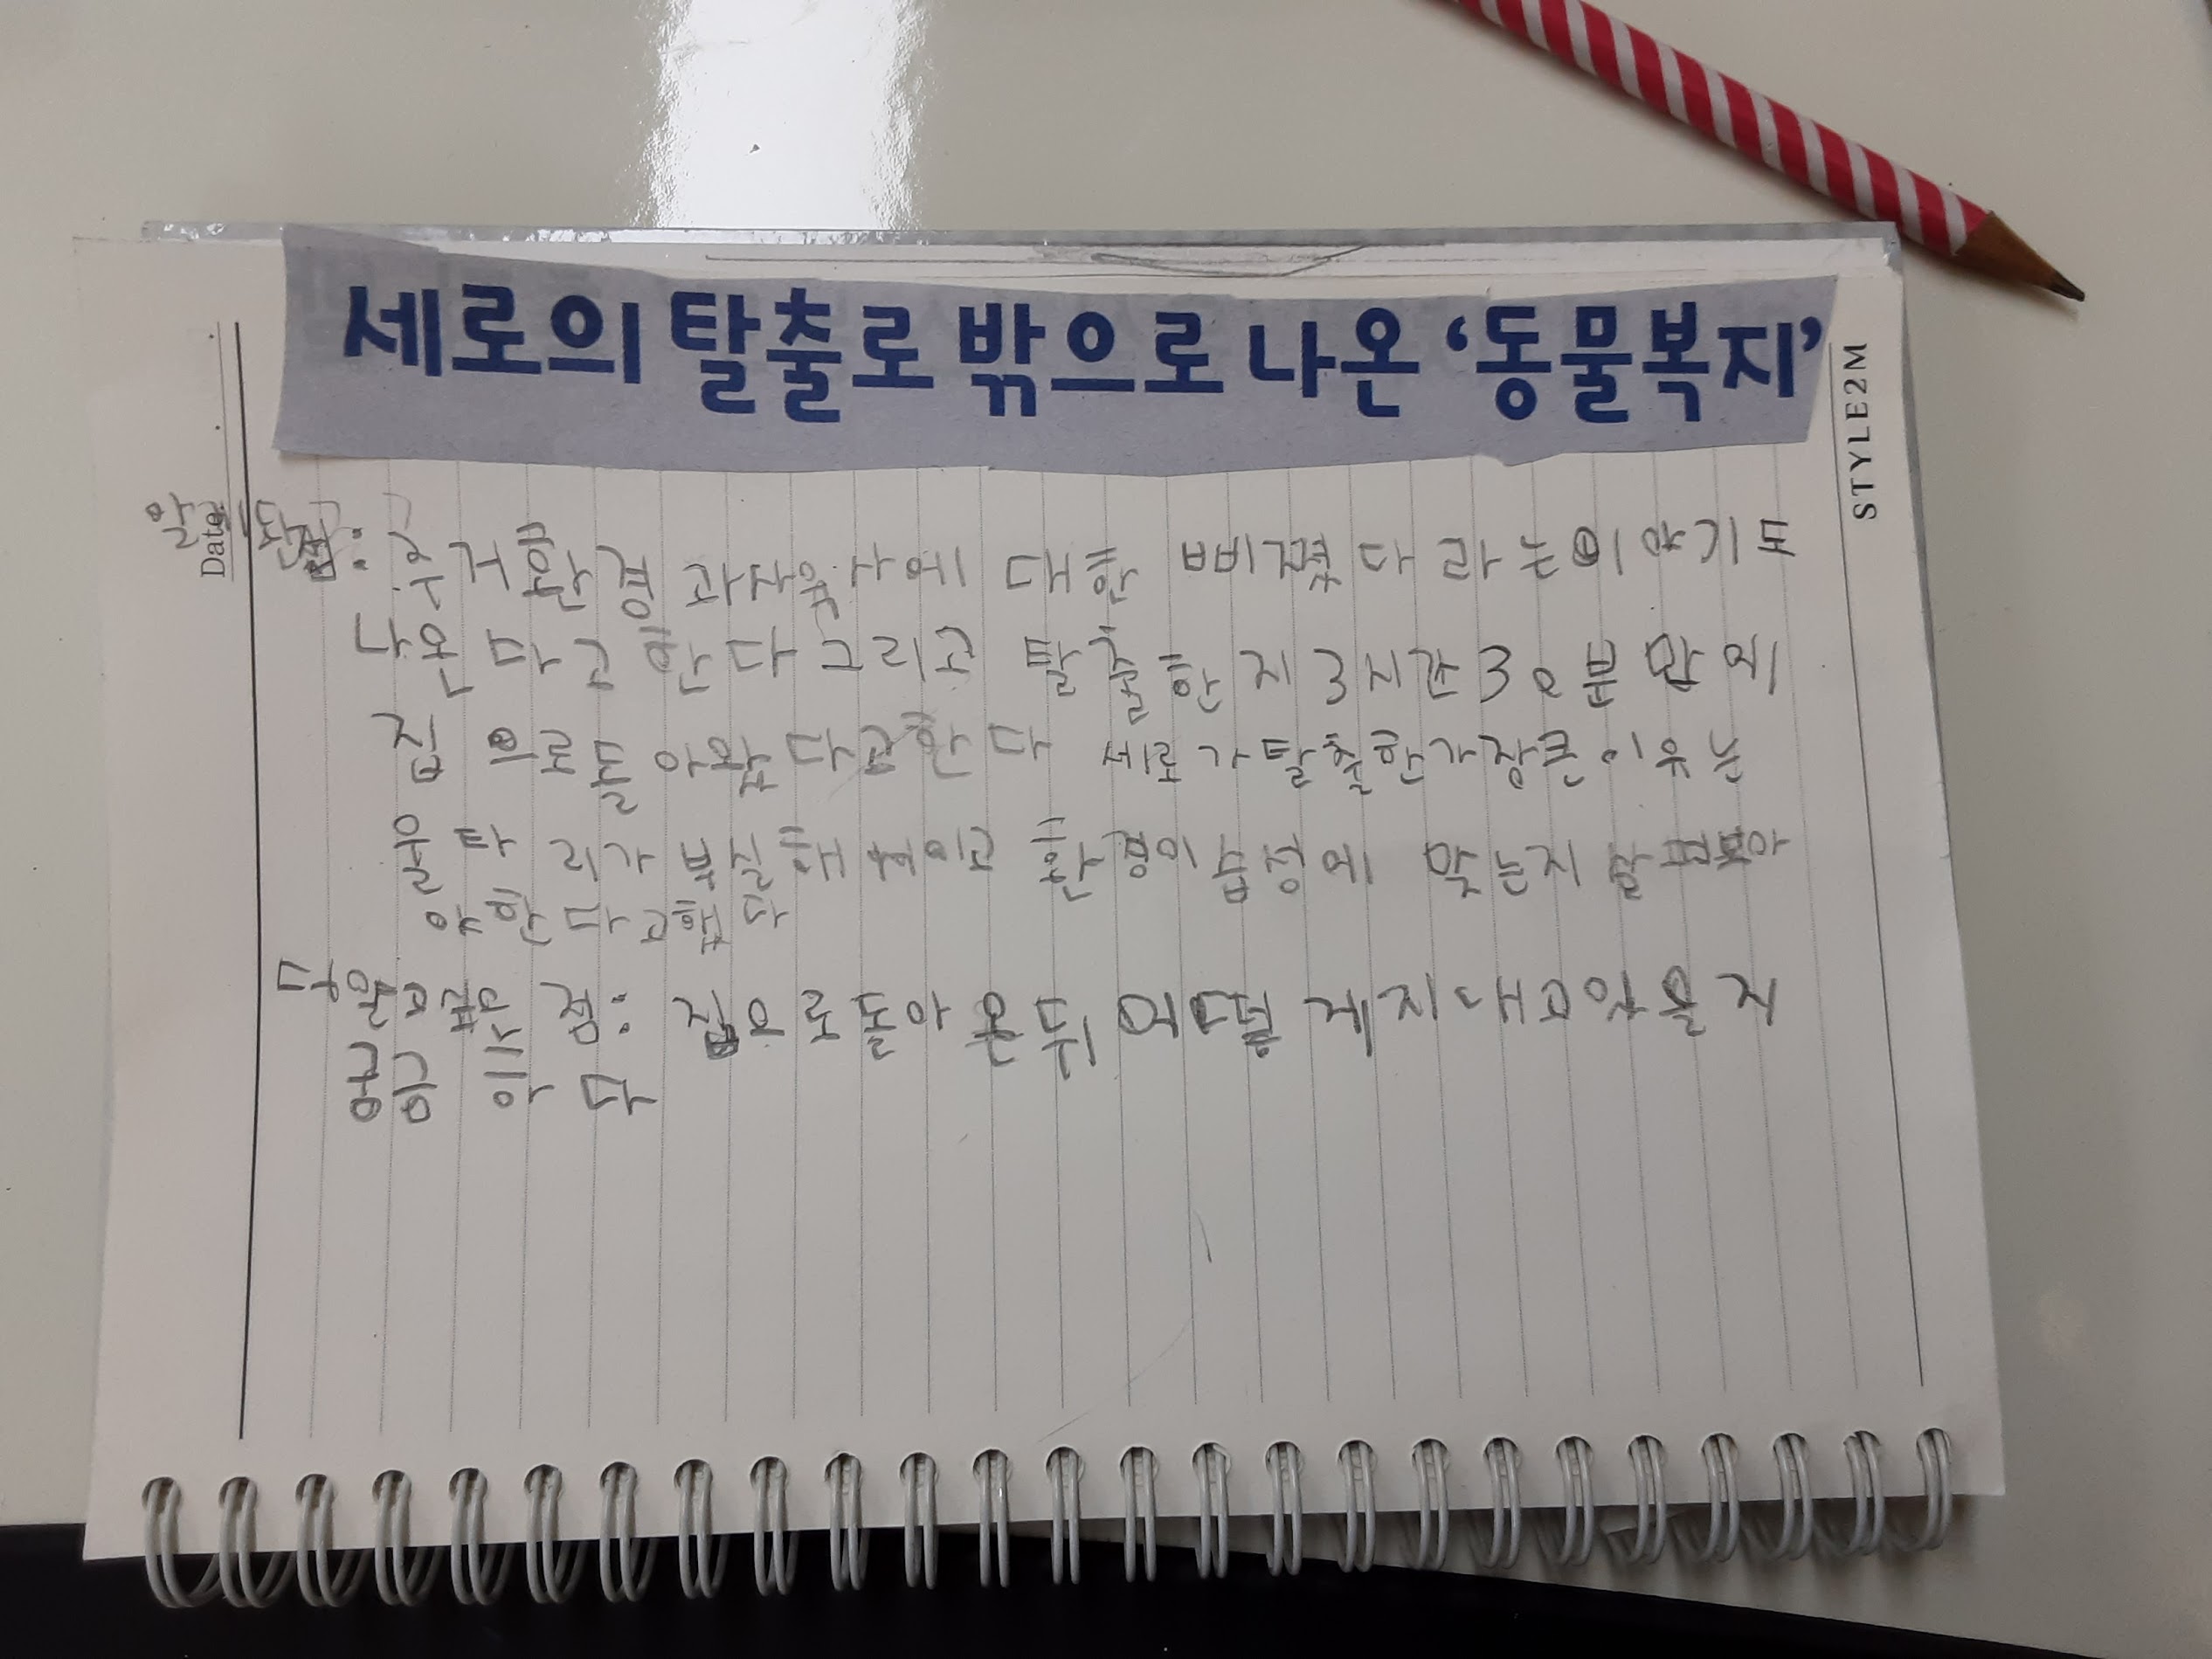 세로의 탈출로 밖으로 나온 ‘동물복지’
STYLE2M
Date
알 단점: 주거환경 과사육사에 대한 삐졌다 라는이야기도
나온 다고 한다 그리고 탈출한지 3시간30분만에
집으로돌아왔다고한다 세로가탈출한가장큰이유는
울타리가 부실해 이고 환경이습성에 맞는지 살펴보아
야한다고했다
더 알고 싶은 점: 집으로돌아온뒤 어떻게지내고있을지
궁금하다